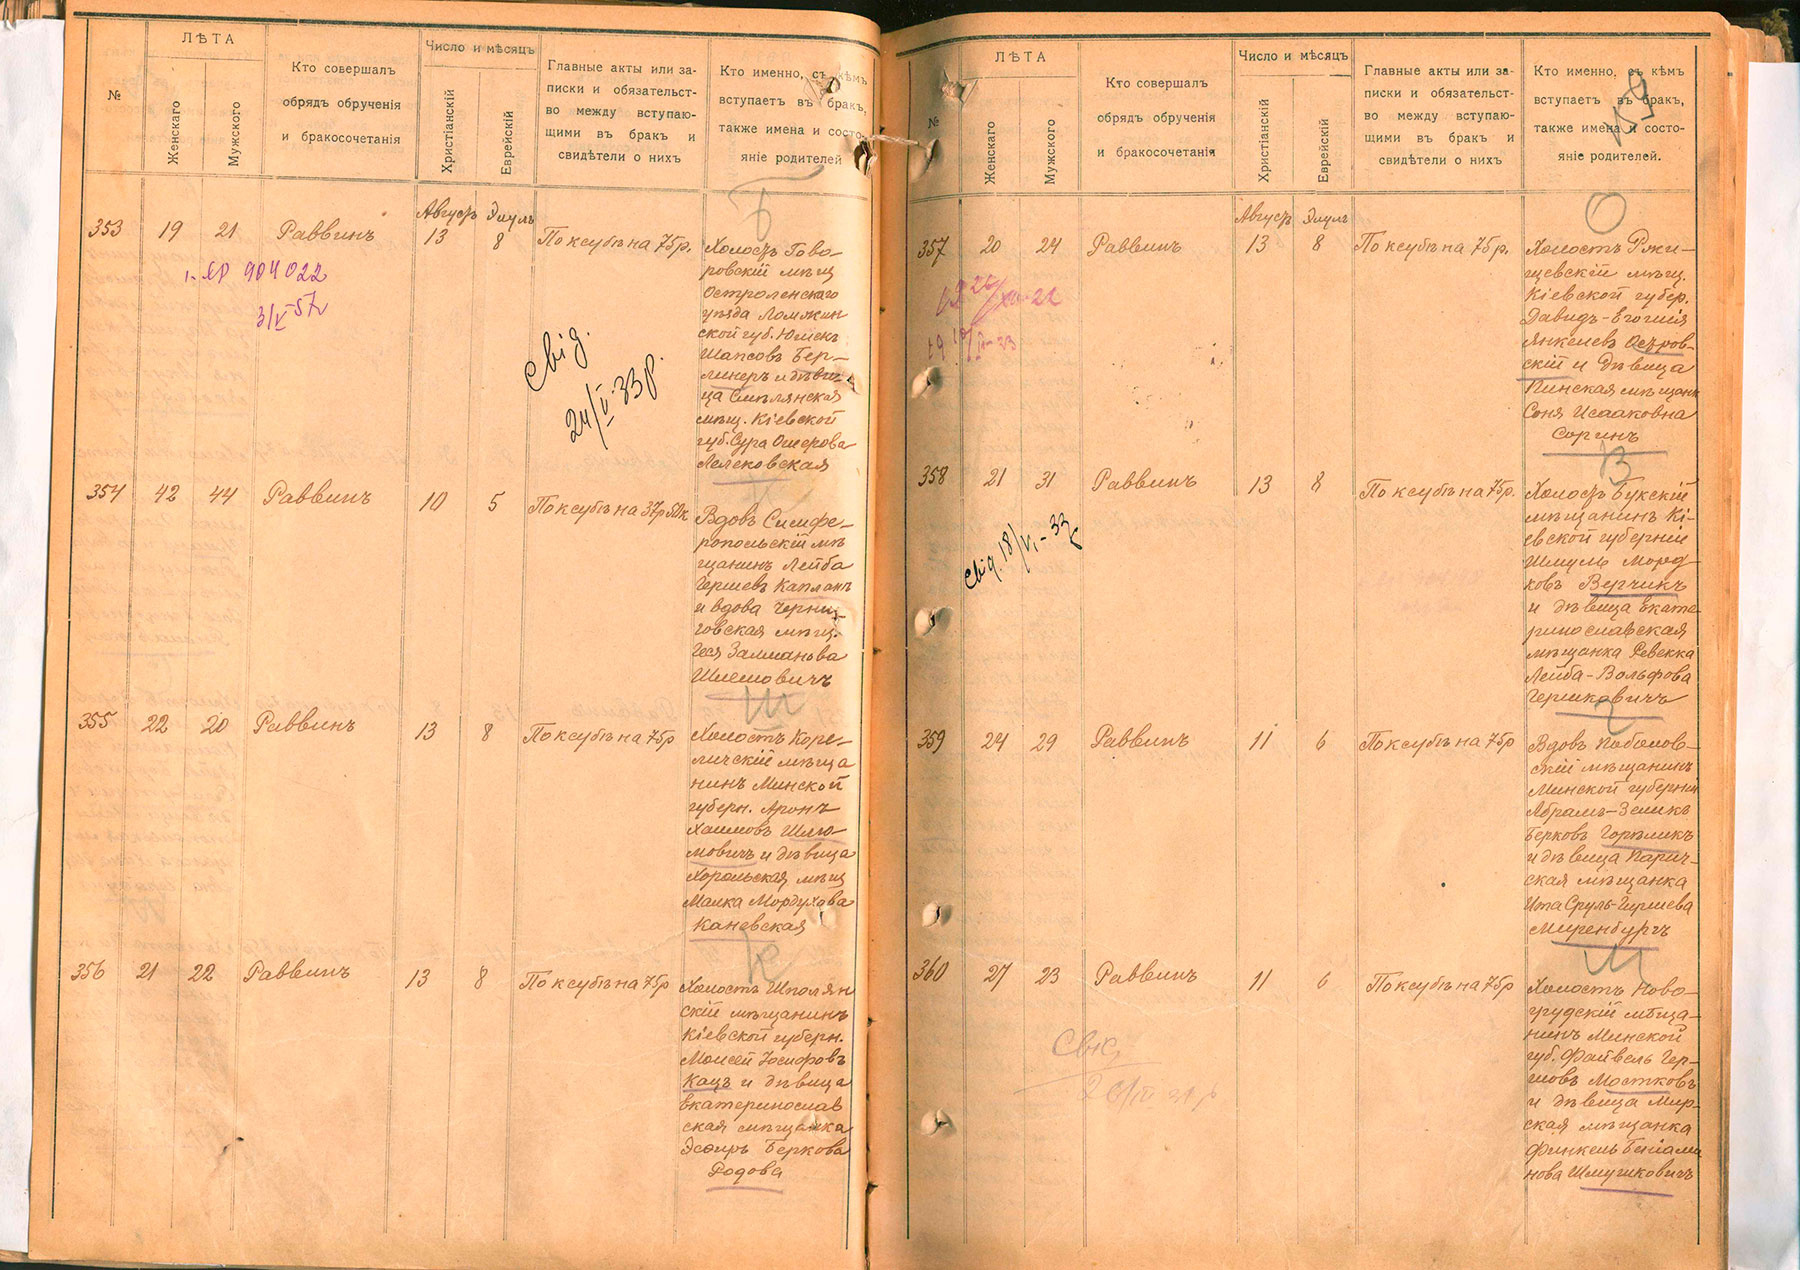 №
ЛѢТА
Женскаго
Мужского
Кто совершалъ
обрядъ обрученія
и бракосочетанія
Число и мѣсяцъ
Христіанскій
Еврейскій
Главные акты или за-
писки и обязательст-
во между вступаю-
щими въ бракъ и
свидѣтели о нихъ
Кто именно, съ кѣмъ
вступаетъ въ бракъ,
также имена и состо-
яніе родителей
Б
Августъ Элулъ
353 19 21 Раввинъ 13 8 По ксубѣ на 75 р.
Холостъ Гово-
ровскій мѣщ
Остроленскаго
уѣзда Ломжин
ской губ.
Шапсовъ Бер-
линеръ и дѣви-
ца Смѣлянская
мѣщ. Кіевской
губ. Сура Ошерова
Лелековская
904022
3/V 57
свід.
24/V-33р.
354 42 44 Раввинъ 10 5 По ксубѣ на 37р 50к
Вдовъ Симфе-
ропольскій мѣ
щанинъ Лейба
Гершевъ Капланъ
и вдова Черни-
говская мѣщ.
Геся Залманова
Шиемовичъ
Ш
355 22 20 Раввинъ 13 8 По ксубѣ на 75р
Холостъ Коре-
личскій мѣща
нинъ Минской
губерн. Аронъ
Хаимовъ Шлио-
мовичъ и дѣвица
Хорольская мѣщ
Малка Мордухова
Каневская
К
356 21 22 Раввинъ 13 8 По ксубѣ на 75р
Холостъ Шполян
скій мѣщанинъ
Кіевской губерн.
Моисей Іосифовъ
Кацъ и дѣвица
Екатеринослав
ская мѣщанка
Эсфирь Беркова
Родова
№
ЛѢТА
Женскаго
Мужского
Кто совершалъ
обрядъ обрученія
и бракосочетанія
Число и мѣсяцъ
Христіанскій
Еврейскій
Главные акты или за-
писки и обязательст-
во между вступаю-
щими въ бракъ и
свидѣтели о нихъ
Кто именно, съ кѣмъ
вступаетъ въ бракъ,
также имена и состо-
яніе родителей.
О
Августъ Элулъ
357 20 24 Раввинъ 13 8 По ксубѣ на 75 р.
Холостъ Ржи-
щевскій мѣщ.
Кіевской губер.
Давидъ-Егошія
Янкелевъ Остров-
скій и дѣвица
Пинская мѣщанк
Соня Исааковна
Соринъ
В
358 21 31 Раввинъ 13 8 По ксубѣ на 75р.
Холостъ Букскій
мѣщанинъ Кі-
евской губерніи
Шмуль Морд
ховъ Верчикъ
и дѣвица Екате
ринославская
мѣщанка Ревекка
Лейба-Вольфова
Гершковичъ
свід. 18/VI-33
Г
359 24 29 Раввинъ 11 6 По ксубѣ на 75р
Вдовъ Паболов-
скій мѣщанинъ
Минской губерніи
Абрамъ-Зеликъ
Берковъ Горѣликъ
и дѣвица Парич-
ская мѣщанка
Ита Сруль-Гиршева
Миренбургъ
М
360 27 23 Раввинъ 11 6 По ксубѣ на 75р
Холостъ Ново-
грудскій мѣща-
нинъ Минской
губ. Файвель Гер-
шовъ Мостковъ
и дѣвица Мир-
ская мѣщанка
Финкель Беніами
нова Шмушковичъ